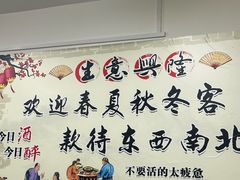 生意興隆
欢迎春夏秋冬客
款待东西南北
今日酒
今日醉
不要活的太疲惫